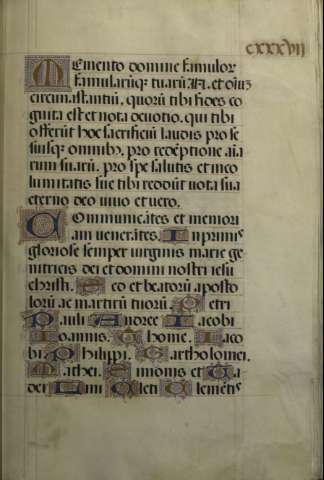 cxxxvij
Memento domine famulor
famularūq; tuarū .N. et oīuȝ
circum astantiū, quorū tibi fides co
gnita est et nota deuotio. qui tibi
offerūt hoc sacrificiū laudis pro se
suisq; omnibȝ, pro redēptione aīa
rum suarū, pro spe salutis et inco
lumitatis sue tibi reddūt uota sua
eterno deo uiuo et uero.
Communicātes et memori
am uenerātes. In primis
gloriose semper uirginis marie ge
nitricis dei et domini nostri iesu
christi. Sed et beatorū aposto
lorū ac martirū tuorū. Petri
Pauli Andree Iacobi
Ioannis. Thome. Iaco
bi. Philippi. Bartholomei.
Mathei. Simonis et Ta
dei Lini Cleti Clemētis